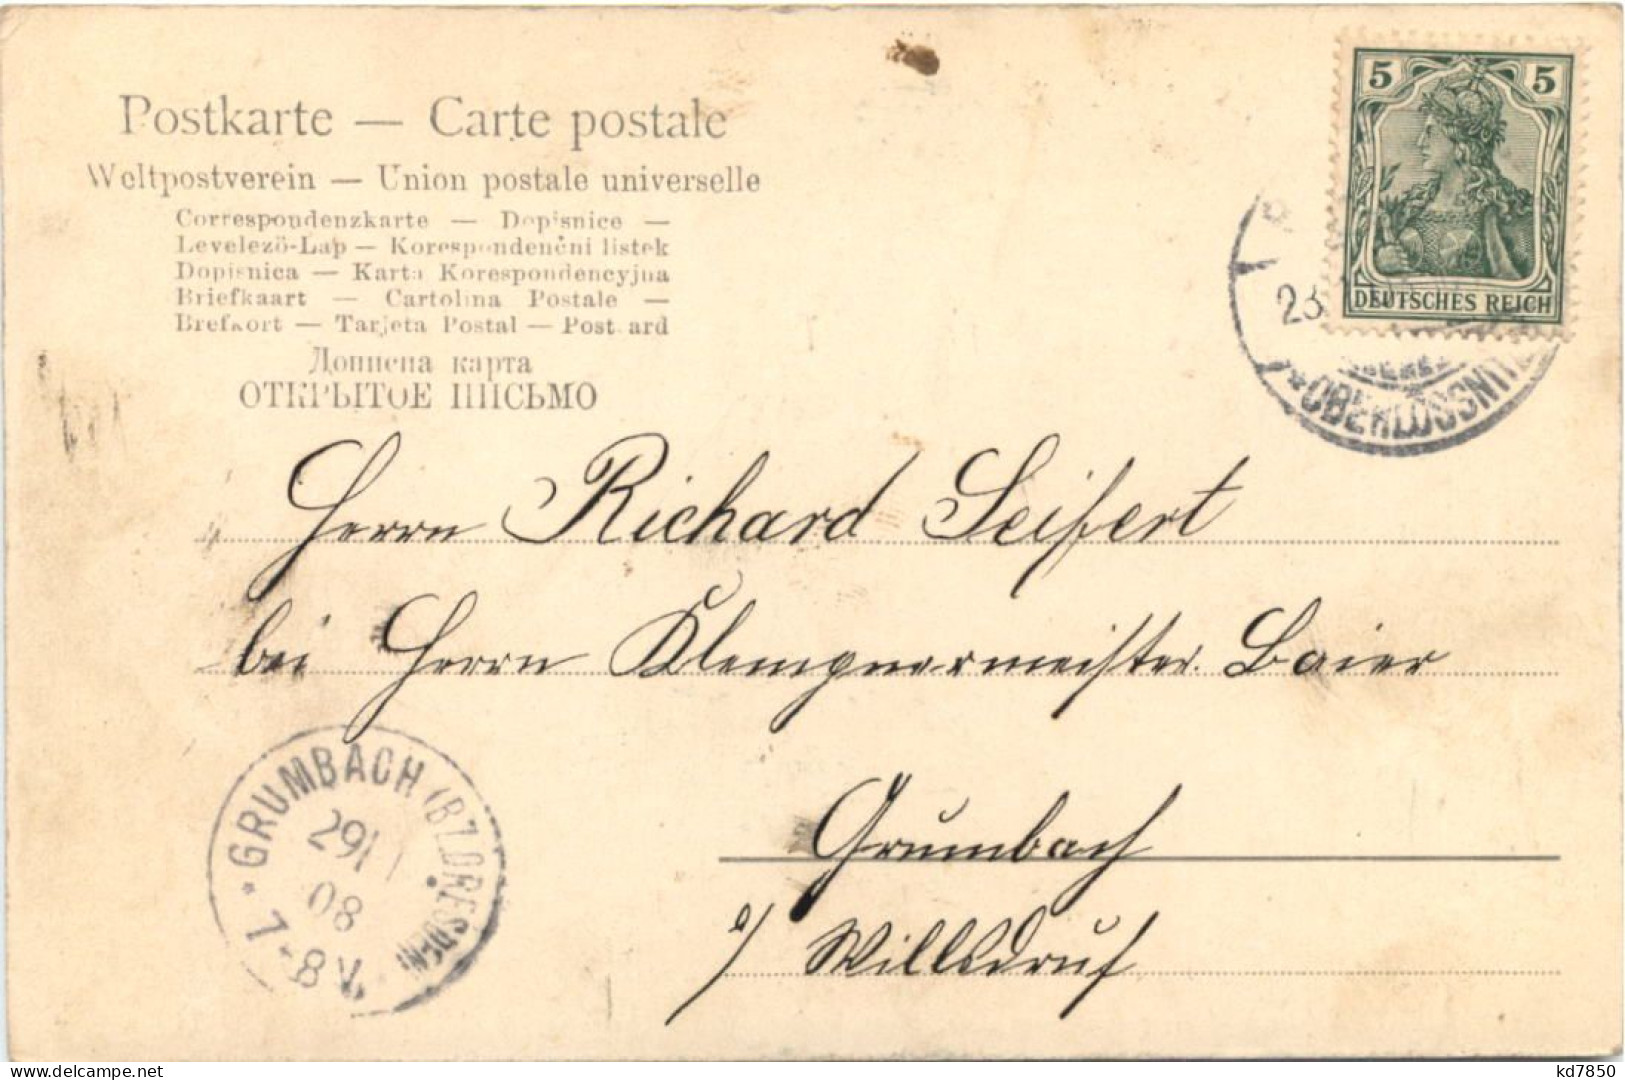 Postkarte — Carte postale
Weltpostverein — Union postale universelle
Correspondenzkarte — Dopisnice —
Levelező-Lap — Korespondenčni listek
Dopisnica — Karta Korespondencyjna
Briefkaart — Cartolina Postale —
Brefkort — Tarjeta Postal — Post ard
Дописна карта
ОТКРЫТОЕ ПИСЬМО
5 5
DEUTSCHES REICH
23
*OBERLÖSSNITZ
Herrn Richard Seifert
bei Herrn Klempnermeister Baier
Grumbach
b/ Willsdruf
* GRUMBACH (BZ. DRESDEN)
29 1
08
7-8 V.
kd7850